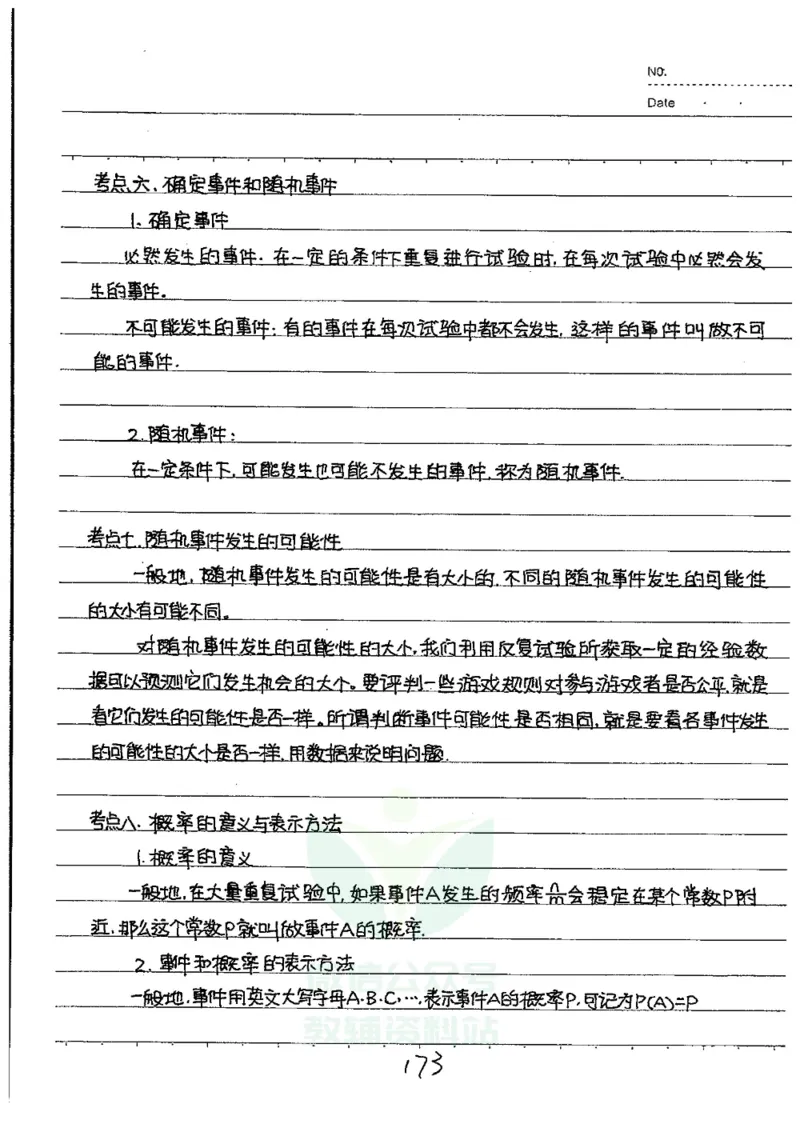 NO.
Date
考点六、确定事件和随机事件
1、确定事件
必然发生的事件:在一定的条件下重复进行试验时,在每次试验中必然会发
生的事件。
不可能发生的事件:有的事件在每次试验中都不会发生,这样的事件叫做不可
能的事件.
2.随机事件:
在一定条件下,可能发生也可能不发生的事件,称为随机事件.
考点七、随机事件发生的可能性
一般地,随机事件发生的可能性是有大小的,不同的随机事件发生的可能性
的大小有可能不同。
对随机事件发生的可能性的大小,我们利用反复试验所获取一定的经验数
据可以预测它们发生机会的大小。要评判一些游戏规则对参与游戏者是否公平,就是
看它们发生的可能性是否一样。所谓判断事件可能性是否相同,就是要看各事件发生
的可能性的大小是否一样,用数据来说明问题.
考点八、概率的意义与表示方法
1.概率的意义
一般地,在大量重复试验中,如果事件A发生的频率n/m会稳定在某个常数P附
近,那么这个常数P就叫做事件A的概率.
2.事件和概率的表示方法
一般地,事件用英文大写字母A·B·C,…,表示事件A的概率P,可记为P(A)=P
微信公众号
教辅资料站
173